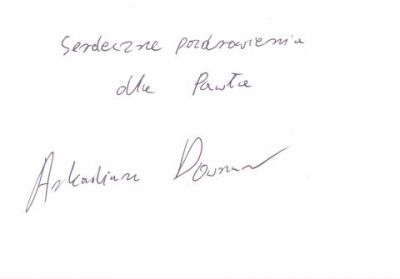 Serdeczne pozdrowienia
dla Pawła
Arkadiusz